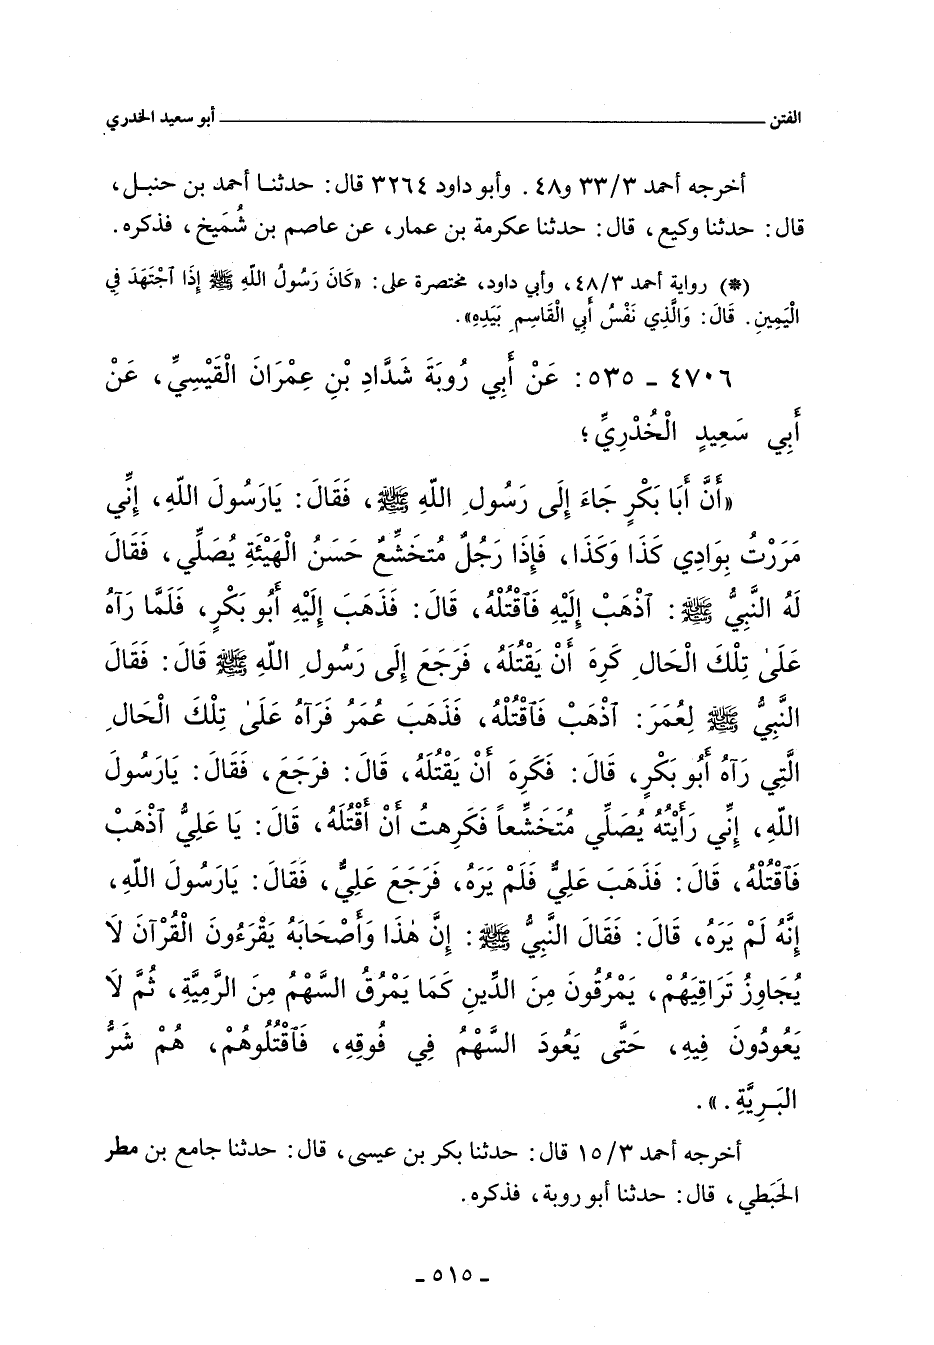 الفتن ــــــــــــــــــــ أبو سعيد الخدري
أخرجه أحمد ٣٣/٣ و٤٨. وأبو داود ٣٢٦٤ قال: حدثنا أحمد بن حنبل،
قال: حدثنا وكيع، قال: حدثنا عكرمة بن عمار، عن عاصم بن شُمَيخ، فذكره.
(*) رواية أحمد ٤٨/٣، وأبي داود، مختصرة على: «كَانَ رَسُولُ اللَّهِ ﷺ إِذَا ٱجْتَهَدَ فِي
الْيَمِينِ. قَالَ: وَالَّذِي نَفْسُ أَبِي الْقَاسِمِ بَيَدِهِ».
٤٧٠٦ - ٥٣٥: عَنْ أَبِي رُوبَةَ شَدَّادِ بْنِ عِمْرَانَ الْقَيْسِيِّ، عَنْ
أَبِي سَعِيدٍ الْخُدْرِيِّ؛
«أَنَّ أَبَا بَكْرٍ جَاءَ إِلَى رَسُولِ اللَّهِ ﷺ، فَقَالَ: يَارَسُولَ اللَّهِ، إِنِّي
مَرَرْتُ بِوَادِي كَذَا وَكَذَا، فَإِذَا رَجُلٌ مُتَخَشِّعٌ حَسَنُ الْهَيْئَةِ يُصَلِّي، فَقَالَ
لَهُ النَّبِيُّ ﷺ: ٱذْهَبْ إِلَيْهِ فَٱقْتُلْهُ، قَالَ: فَذَهَبَ إِلَيْهِ أَبُو بَكْرٍ، فَلَمَّا رَآهُ
عَلَىٰ تِلْكَ الْحَالِ كَرِهَ أَنْ يَقْتُلَهُ، فَرَجَعَ إِلَى رَسُولِ اللَّهِ ﷺ قَالَ: فَقَالَ
النَّبِيُّ ﷺ لِعُمَرَ: ٱذْهَبْ فَٱقْتُلْهُ، فَذَهَبَ عُمَرُ فَرَآهُ عَلَىٰ تِلْكَ الْحَالِ
الَّتِي رَآهُ أَبُو بَكْرٍ، قَالَ: فَكَرِهَ أَنْ يَقْتُلَهُ، قَالَ: فَرَجَعَ، فَقَالَ: يَارَسُولَ
اللَّهِ، إِنِّي رَأَيْتُهُ يُصَلِّي مُتَخَشِّعاً فَكَرِهتُ أَنْ أَقْتُلَهُ، قَالَ: يَا عَلِيُّ ٱذْهَبْ
فَٱقْتُلْهُ، قَالَ: فَذَهَبَ عَلِيٌّ فَلَمْ يَرَهُ، فَرَجَعَ عَلِيٌّ، فَقَالَ: يَارَسُولَ اللَّهِ،
إِنَّهُ لَمْ يَرَهُ، قَالَ: فَقَالَ النَّبِيُّ ﷺ: إِنَّ هٰذَا وَأَصْحَابَهُ يَقْرَءُونَ الْقُرْآنَ لَا
يُجَاوِزُ تَرَاقِيَهُمْ، يَمْرُقُونَ مِنَ الدِّينِ كَمَا يَمْرُقُ السَّهْمُ مِنَ الرَّمِيَّةِ، ثُمَّ لَا
يَعُودُونَ فِيهِ، حَتَّى يَعُودَ السَّهْمُ فِي فُوقِهِ، فَٱقْتُلُوهُمْ، هُمْ شَرُّ
البَرِيَّةِ.».
أخرجه أحمد ١٥/٣ قال: حدثنا بكر بن عيسى، قال: حدثنا جامع بن مطر
الحَبَطي، قال: حدثنا أبو روبة، فذكره.
- ٥١٥ -